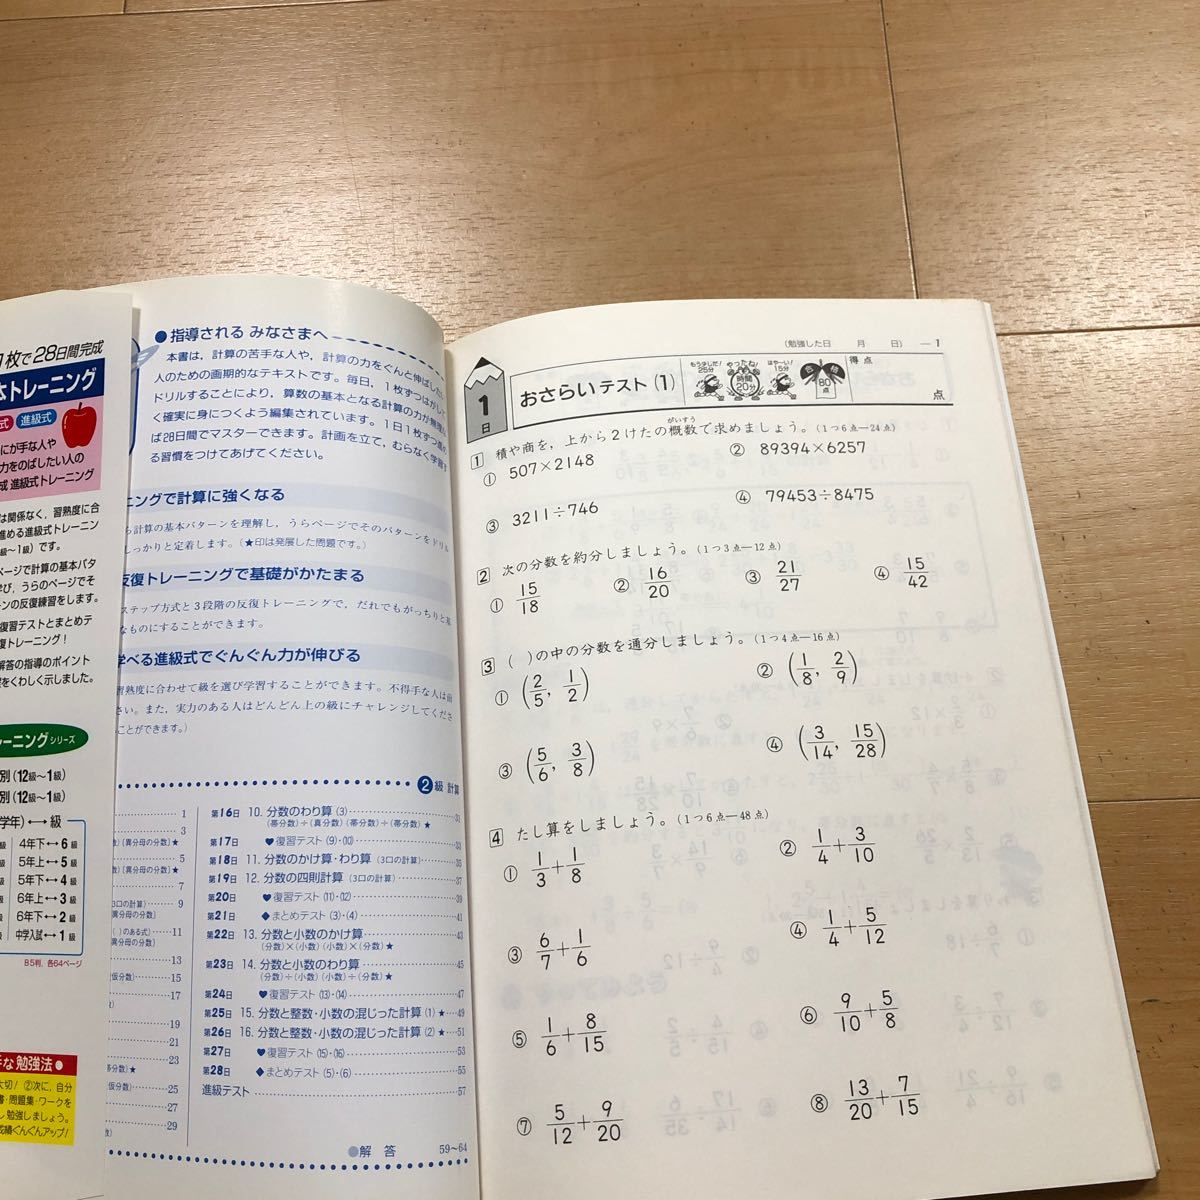 1枚で28日間完成
本トレーニング
式 進級式
にが手な人や
力をのばしたい人の
成 進級式トレーニング
は関係なく、習熟度に合
進める進級式トレーニン
級〜1級)です。
ページで計算の基本パタ
学び、うらのページでそ
ーンの反復練習をします。
復習テストとまとめテ
復トレーニング!
解答の指導のポイント
をくわしく示しました。
ーニングシリーズ
別(12級〜1級)
別(12級〜1級)
学年)⟷級
4年下⟷6級
5年上⟷5級
5年下⟷4級
6年上⟷3級
6年下⟷2級
中学入試⟷1級
B5判，各64ページ
手な勉強法●
大切! ②次に，自分
書・問題集・ワークを
し 勉強しましょう。
成績ぐんぐんアップ!
●指導される みなさまへ
本書は，計算の苦手な人や，計算の力をぐんと伸ばしたい
人のための画期的なテキストです。毎日，1枚ずつはがして
ドリルすることにより，算数の基本となる計算の力が無理
く確実に身につくよう編集されています。1日1枚ずつ進め
ば28日間でマスターできます。計画を立て，むらなく学習す
る習慣をつけてあげてください。
ニングで計算に強くなる
ら計算の基本パターンを理解し，うらページでそのパターンをドリル
しっかりと定着します。(★印は発展した問題です。)
反復トレーニングで基礎がかたまる
ステップ方式と3段階の反復トレーニングで，だれでもがっちりと基
なものにすることができます。
学べる進級式でぐんぐん力が伸びる
習熟度に合わせて級を選び学習することができます。不得手な人は前
さい。また，実力のある人はどんどん上の級にチャレンジしてくださ
ことができます。)
2級 計算
1
3
(異分母の分数)★
5
(異分母の分数)★
7
(3口の計算) 9
異分母の分数)
( )のある式) 11
異分母の分数)
13
仮分数) 15
17
19
21
23
帯分数)★
25
仮分数)
27
29
第16日 10. 分数のわり算(3) 31
(帯分数)÷(真分数)(帯分数)÷(帯分数)★
第17日 ♥復習テスト(9)・(10) 33
第18日 11. 分数のかけ算・わり算(3口の計算) 35
第19日 12. 分数の四則計算(3口の計算) 37
第20日 ♥復習テスト(11)・(12) 39
第21日 ◆まとめテスト(3)・(4) 41
第22日 13. 分数と小数のかけ算 43
(分数)×(小数)(小数)×(分数)★
第23日 14. 分数と小数のわり算 45
(分数)÷(小数)(小数)÷(分数)★
第24日 ♥復習テスト(13)・(14) 47
第25日 15. 分数と整数・小数の混じった計算(1)★ 49
第26日 16. 分数と整数・小数の混じった計算(2)★ 51
第27日 ♥復習テスト(15)・(16) 53
第28日 ◆まとめテスト(5)・(6) 55
進級テスト 57
●解 答 59〜64
(勉強した日 月 日) ―1
1日 おさらいテスト(1)
もう少しだ! 25分 やったね! 時間20分 はや〜い! 15分 合格 80点 得点 点
1 積や商を，上から2けたの概数で求めましょう。(1つ6点―24点)
がいすう
① 507×2148 ② 89394×6257
③ 3211÷746 ④ 79453÷8475
2 次の分数を約分しましょう。(1つ3点―12点)
① 15/18 ② 16/20 ③ 21/27 ④ 15/42
3 ( )の中の分数を通分しましょう。(1つ4点―16点)
① (2/5, 1/2) ② (1/8, 2/9)
③ (5/6, 3/8) ④ (3/14, 15/28)
4 たし算をしましょう。(1つ6点―48点)
① 1/3+1/8 ② 1/4+3/10
③ 6/7+1/6 ④ 1/4+5/12
⑤ 1/6+8/15 ⑥ 9/10+5/8
⑦ 5/12+9/20 ⑧ 13/20+7/15